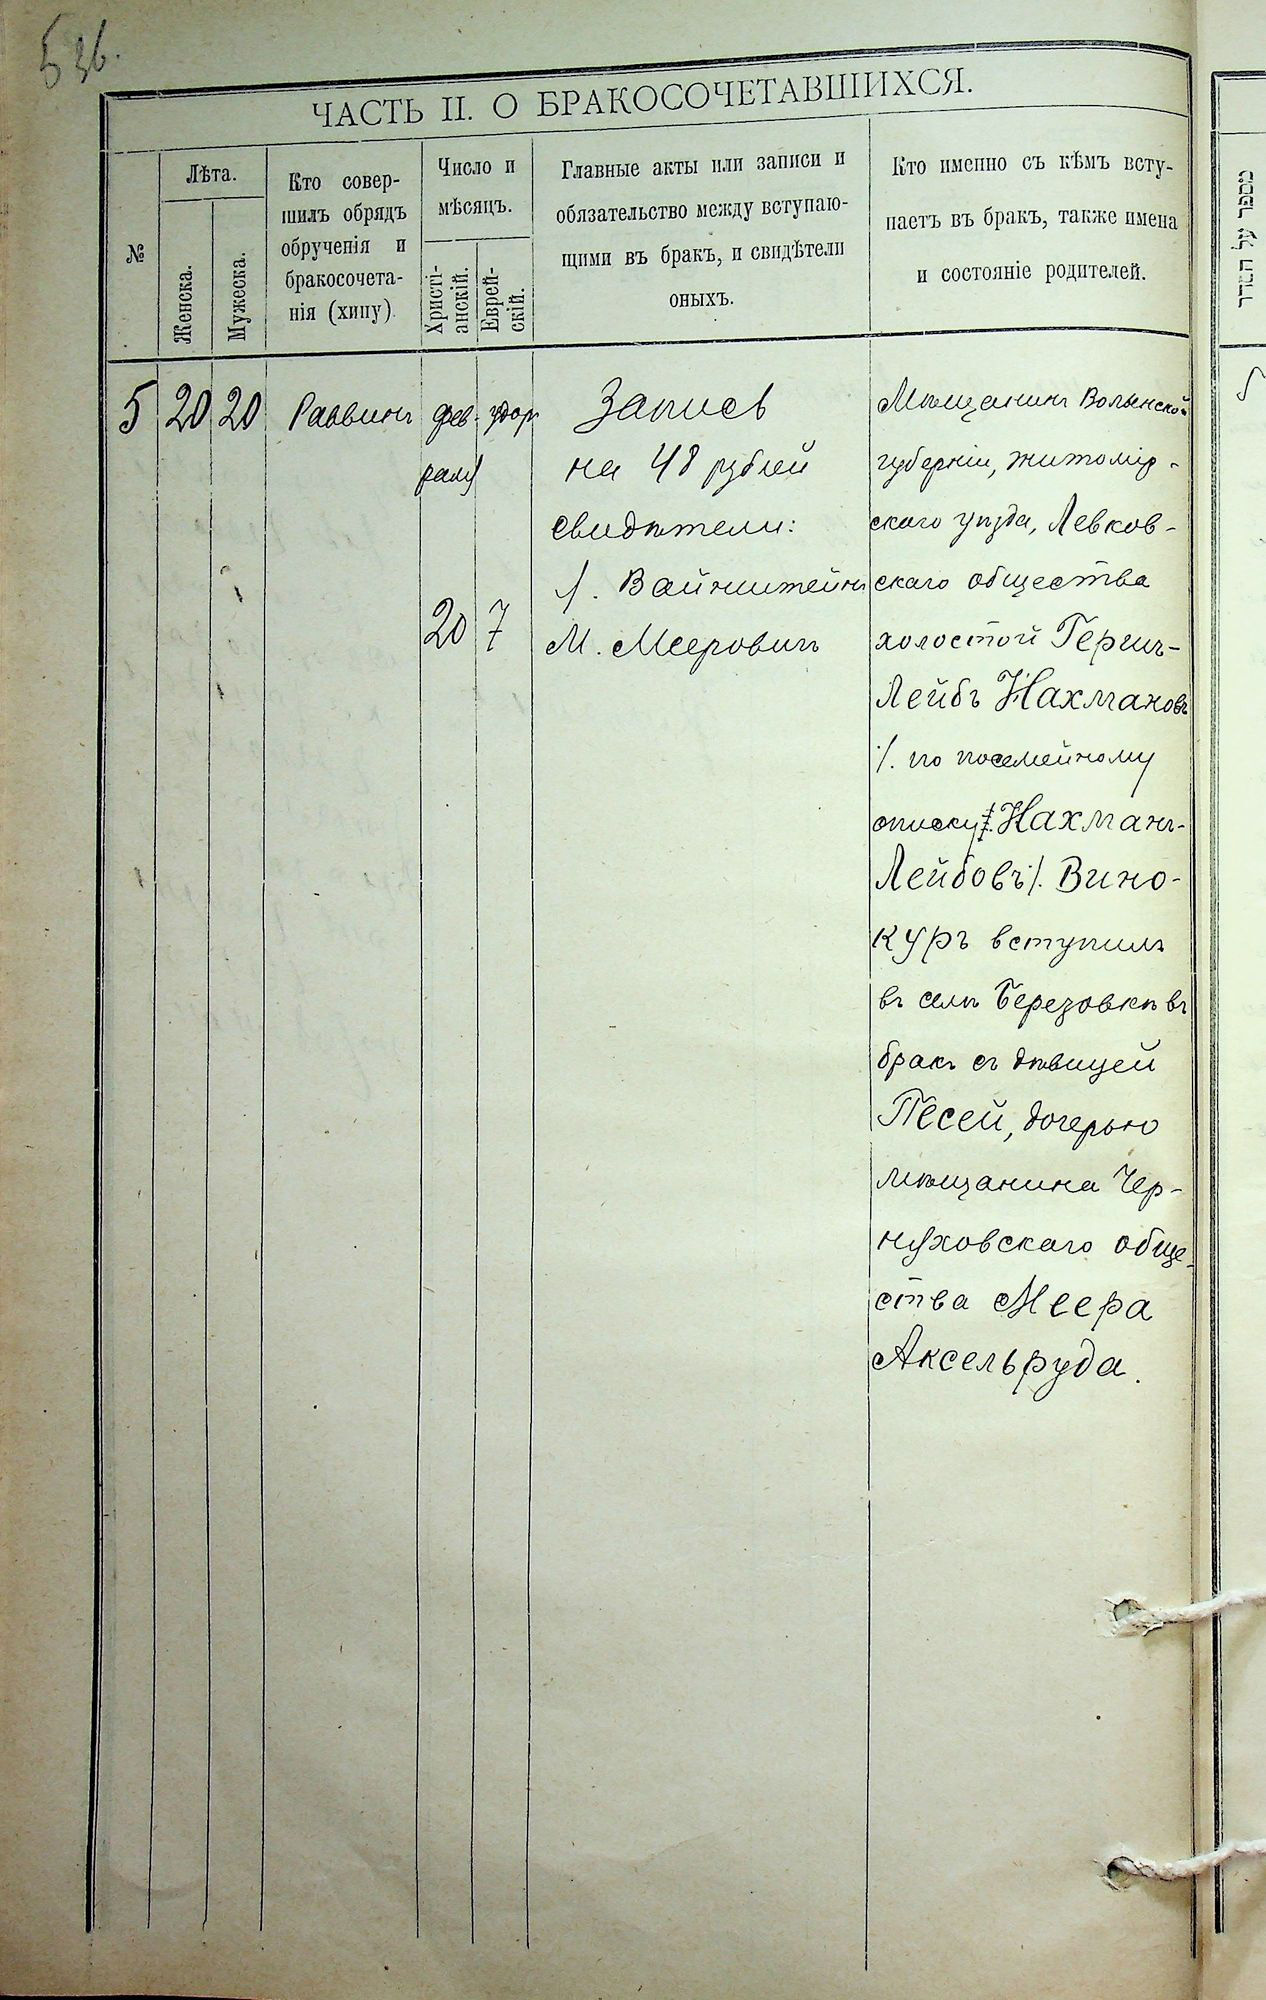 536.
ЧАСТЬ II. О БРАКОСОЧЕТАВШИХСЯ.
№
Лѣта.
Женска.
Мужеска.
Кто совер-
шилъ обрядъ
обрученія и
бракосочета-
нія (хипу)
Число и
мѣсяцъ.
Христі-
анскій.
Еврей-
скій.
Главные акты или записи и
обязательство между вступаю-
щими въ бракъ, и свидѣтели
оныхъ.
Кто именно съ кѣмъ всту-
паетъ въ бракъ, также имена
и состояніе родителей.
5
20
20
Раввинъ
фев-
раля
20
7
Запись
на 48 рублей
свидѣтели:
Вайнштейнъ
М. Мееровичъ
Мѣщанинъ Волынской
губерніи, житомір-
скаго уѣзда, Левков-
скаго общества
холостой Гершъ-
Лейбъ Нахмановъ
/. по посемейному
списку Нахманъ-
Лейбовъ/. Вино-
куръ вступилъ
въ селѣ Березовкѣ въ
бракъ съ дѣвицей
Песей, дочерью
мѣщанина Чер-
няховскаго обще-
ства Меера
Аксельруда.
מספר על הסדר